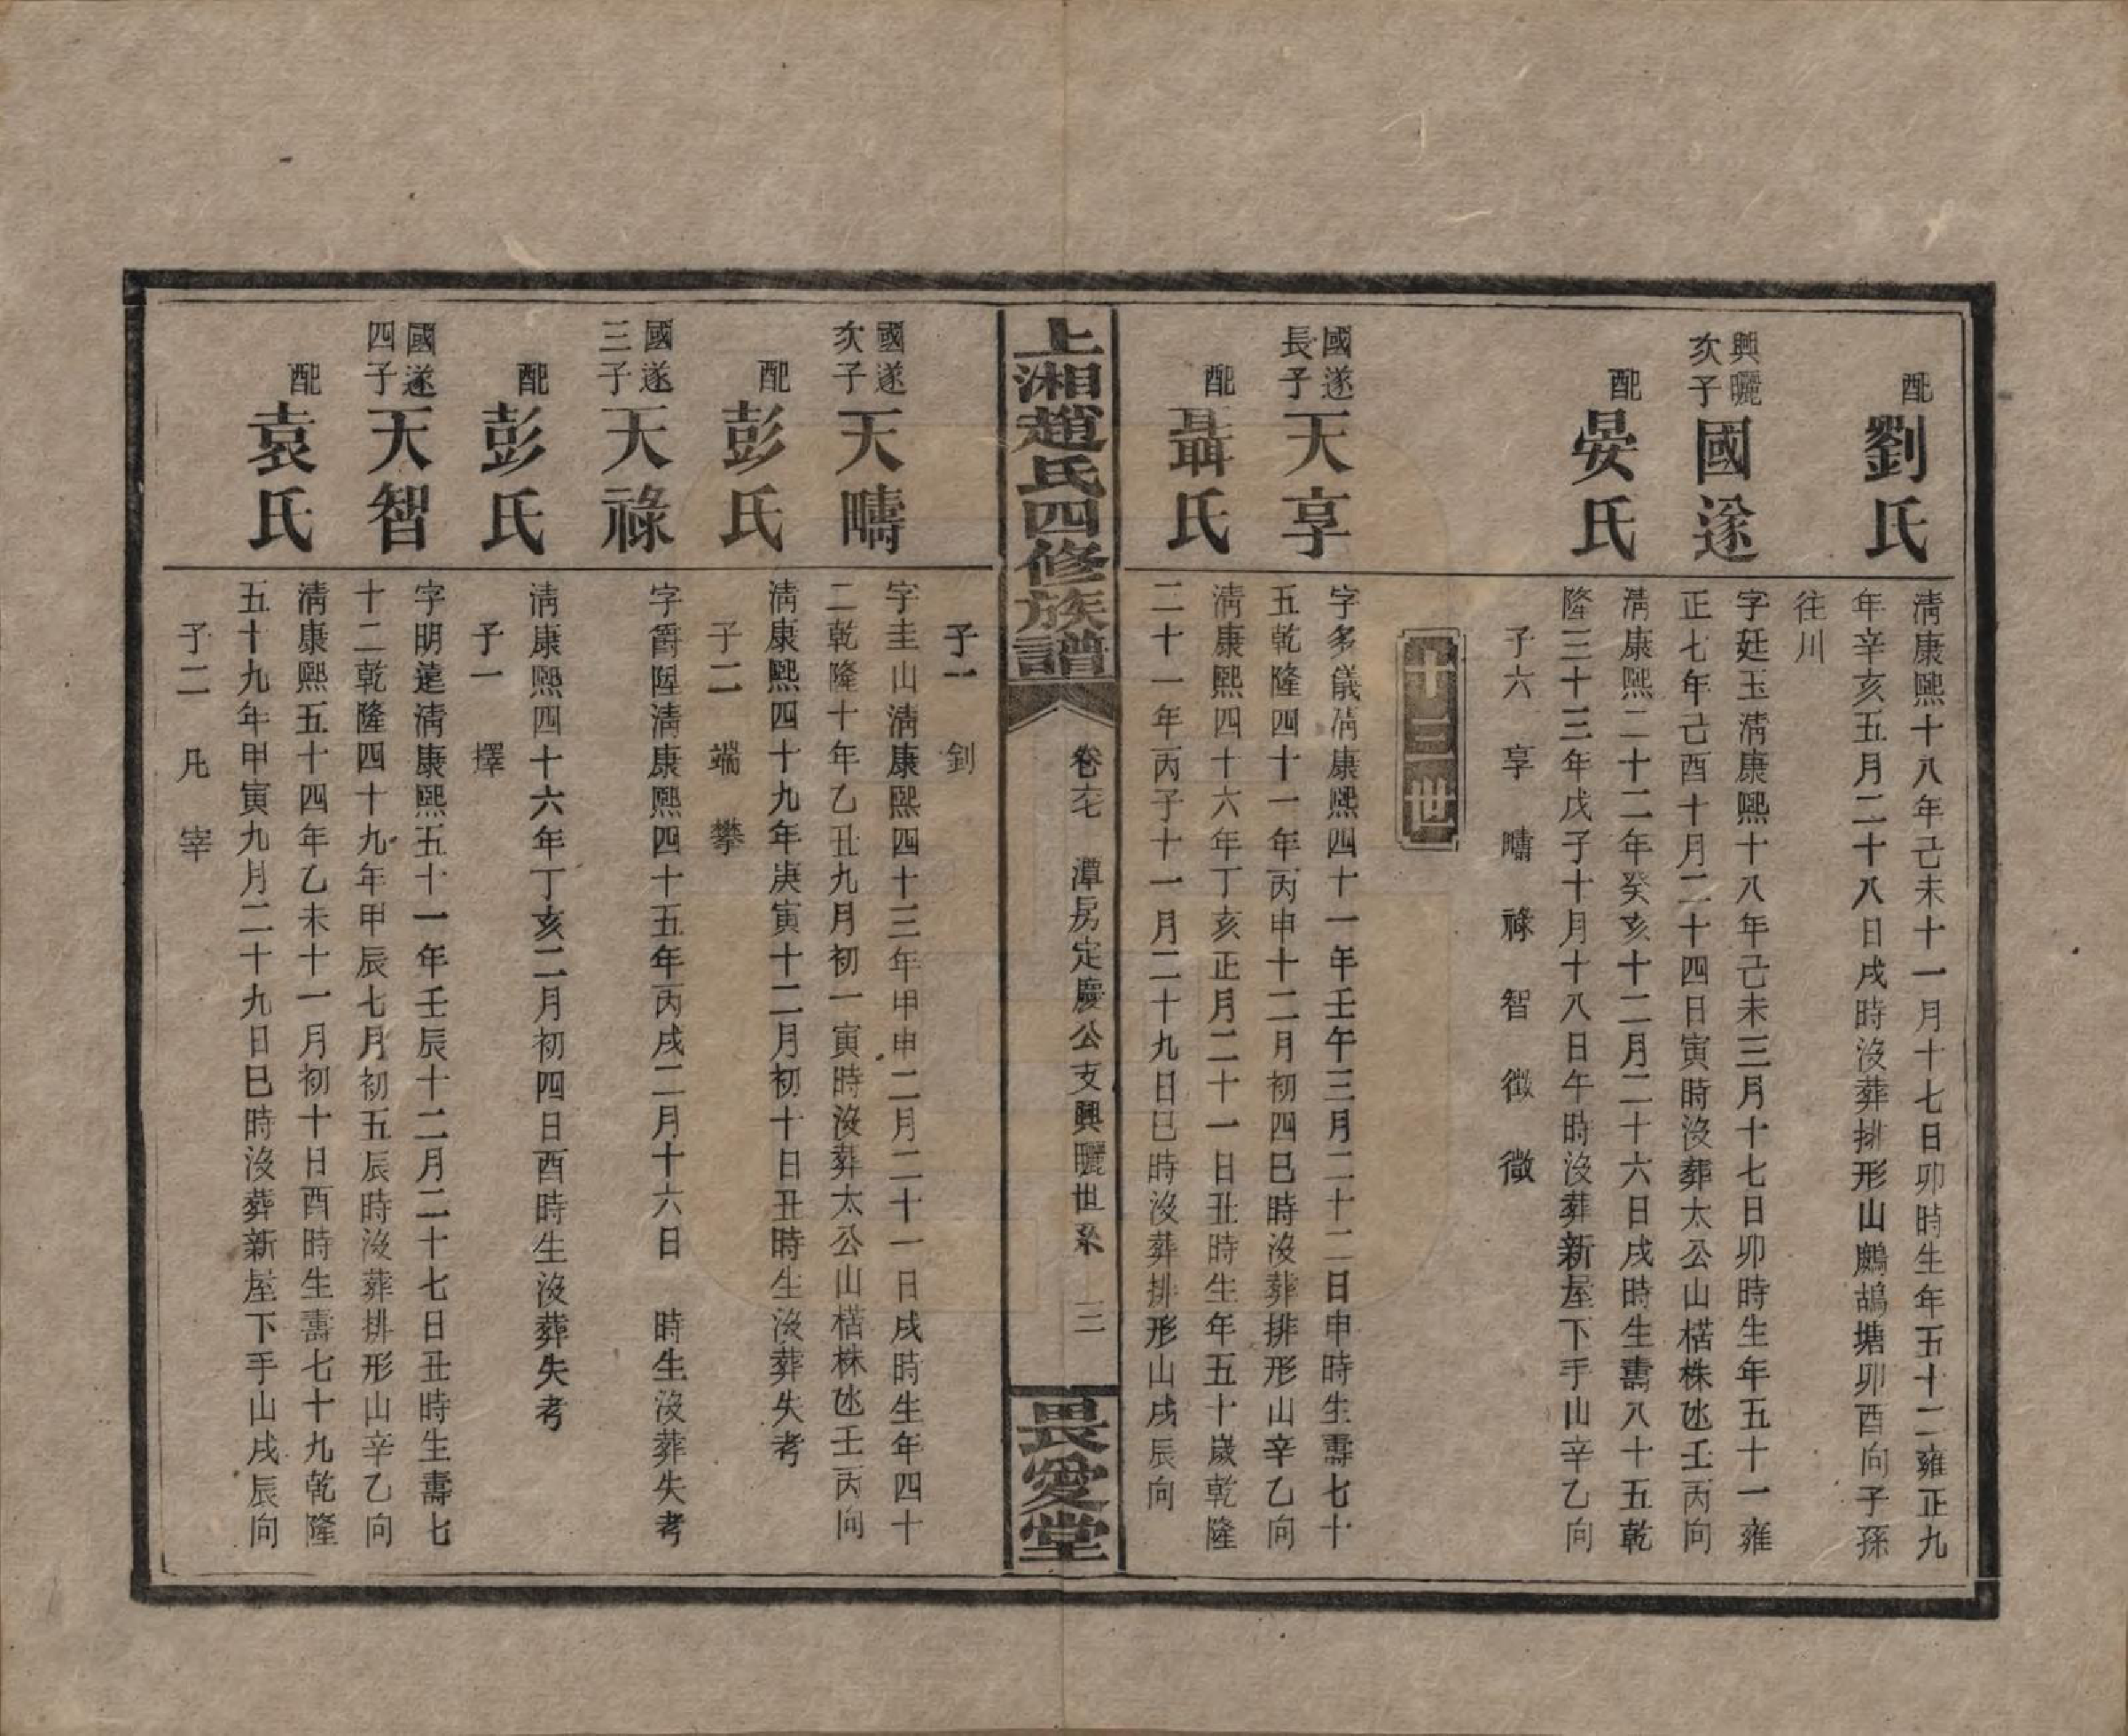 配
劉氏
淸康熙十八年己未十一月十七日卯時生年五十二雍正九
年辛亥五月二十八日戌時沒葬排形山鷓鴣塘卯酉向子孫
往川
興曬
次子
國遂
字廷玉淸康熙十八年己未三月十七日卯時生年五十一雍
正七年己酉十月二十四日寅時沒葬太公山楛株氹壬丙向
配
晏氏
淸康熙二十二年癸亥十二月二十六日戌時生壽八十五乾
隆三十三年戊子十月十八日午時沒葬新屋下手山辛乙向
子六 享 疇 祿 智 徵 徵
十三世
國遂
長子
天享
字多儀淸康熙四十一年壬午三月二十二日申時生壽七十
五乾隆四十一年丙申十二月初四巳時沒葬排形山辛乙向
配
聶氏
淸康熙四十六年丁亥正月二十一日丑時生年五十歲乾隆
二十一年丙子十一月二十九日巳時沒葬排形山戌辰向
上湘趙氏四修族譜
卷 潭房定慶公支興曬世系 三
畏愛堂
子一 釗
國遂
次子
天疇
字圭山淸康熙四十三年甲申二月二十一日戌時生年四十
二乾隆十年乙丑九月初一寅時沒葬太公山楛株氹壬丙向
配
彭氏
淸康熙四十九年庚寅十二月初十日丑時生沒葬失考
子二 端 攀
國遂
三子
天祿
字爵陞淸康熙四十五年丙戌二月十六日 時生沒葬失考
配
彭氏
淸康熙四十六年丁亥二月初四日酉時生沒葬失考
子一 擇
國遂
四子
天智
字明遠淸康熙五十一年壬辰十二月二十七日丑時生壽七
十二乾隆四十九年甲辰七月初五辰時沒葬排形山辛乙向
配
袁氏
淸康熙五十四年乙未十一月初十日酉時生壽七十九乾隆
五十九年甲寅九月二十九日巳時沒葬新屋下手山戌辰向
子二 凡 宰